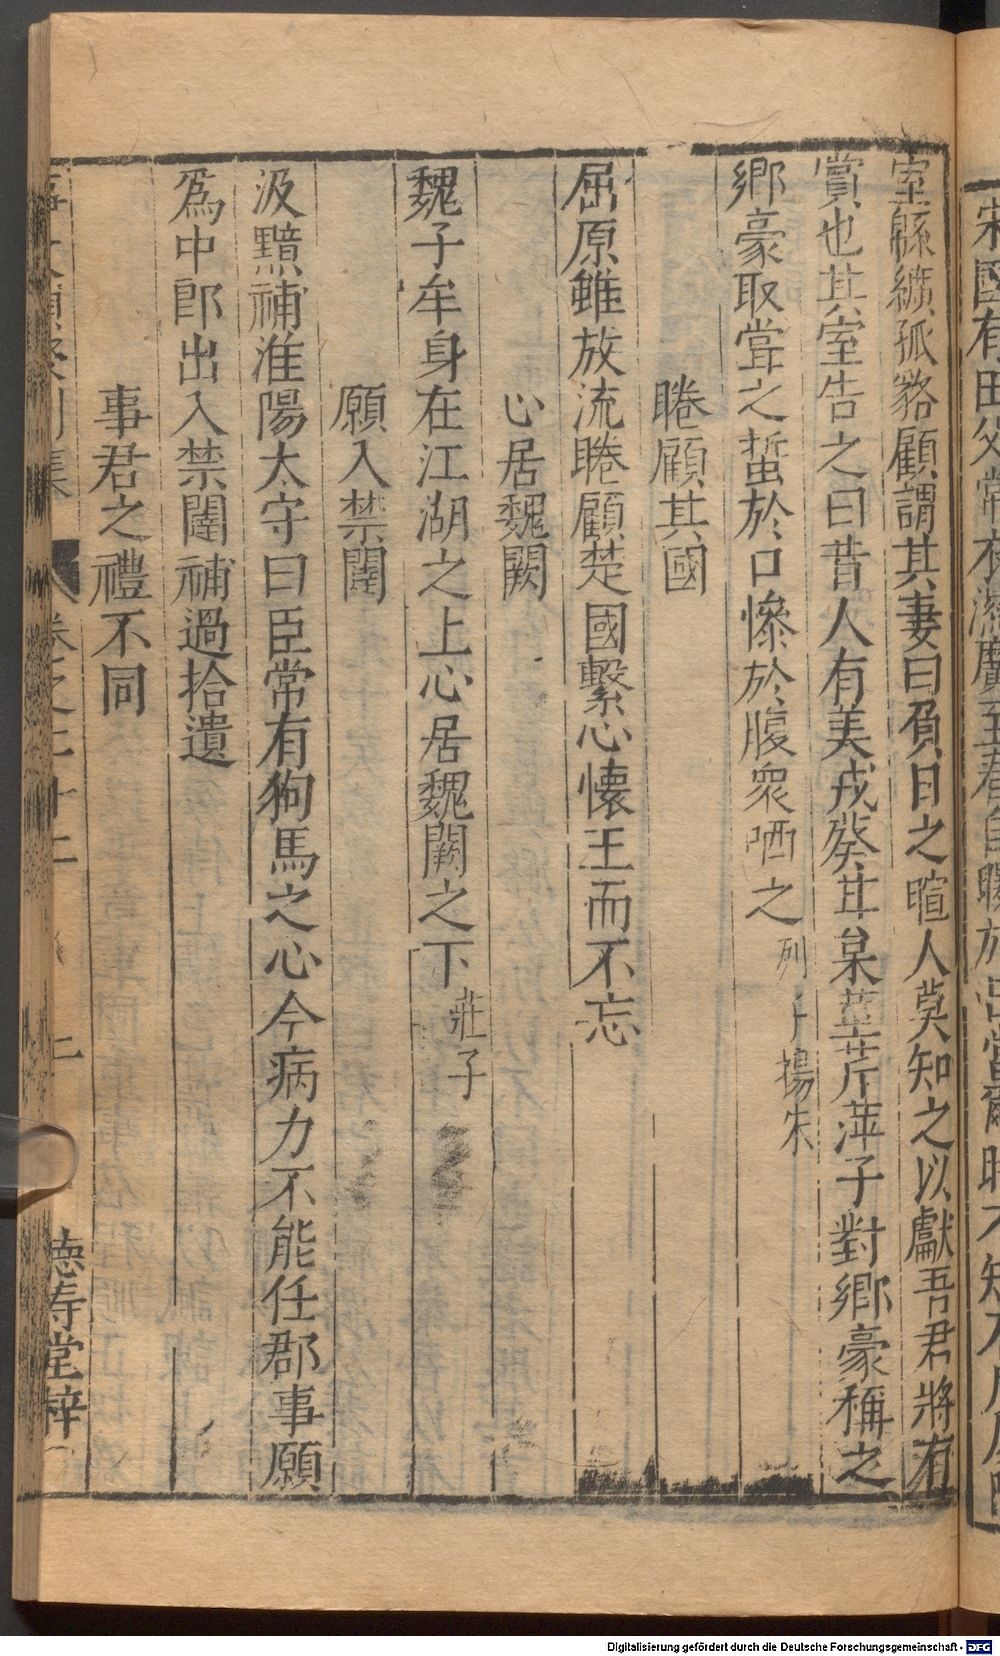 宋國有田父常衣
室緜纊狐貉顧謂其妻曰負日之暄人莫知之以獻吾君將有
賞也其室告之曰昔人有美戎癸甘枲莖芹萍子對鄉豪稱之
鄉豪取嘗之蜇於口慘於腹衆哂之列子揚朱
睠顧其國
屈原雖放流睠顧楚國繫心懷王而不忘
心居魏闕
魏子牟身在江湖之上心居魏闕之下莊子
願入禁闥
汲黯補淮陽太守曰臣常有狗馬之心今病力不能任郡事願
爲中郎出入禁闥補過拾遺
事君之禮不同
卷之二十二 二 德寿堂梓
Digitalisierung gefördert durch die Deutsche Forschungsgemeinschaft - DFG